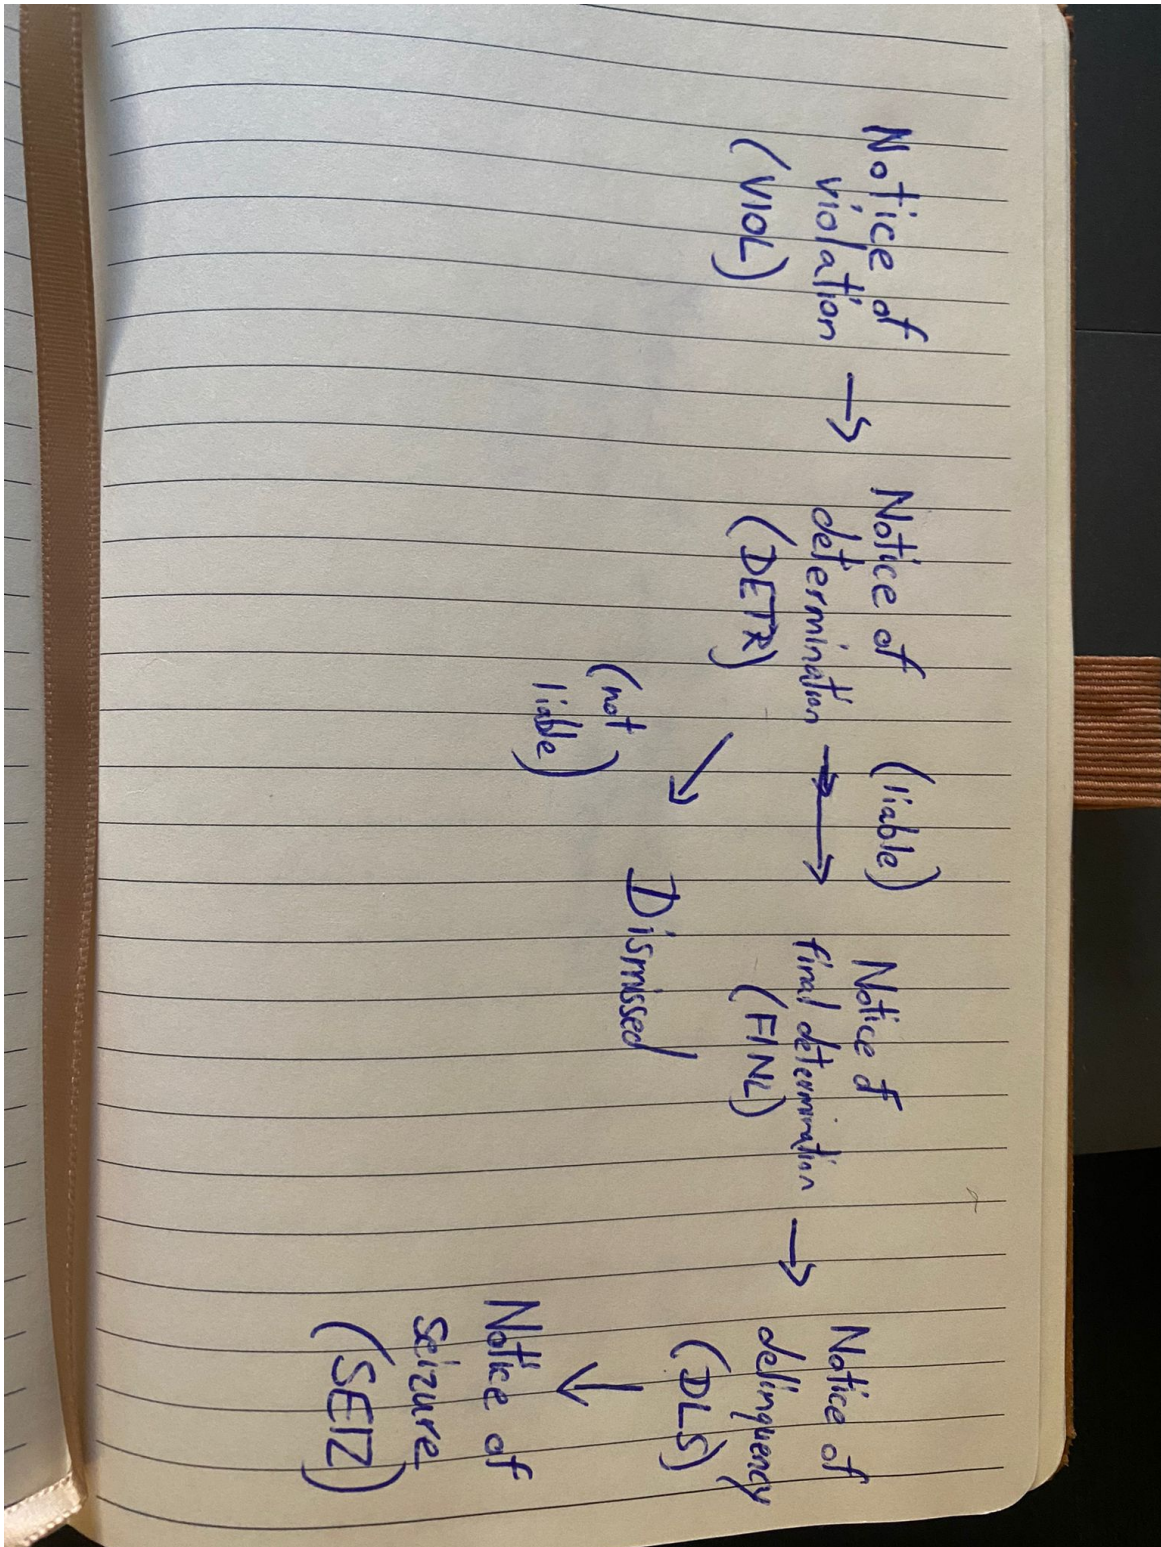 Notice of
violation
(VIOL)
→
Notice of
determination
(DETR)
→
(liable)
Notice of
final determination
(FINL)
→
Notice of
delinquency
(DLS)
↓
Notice of
seizure
(SEIZ)
↘
(not
liable)
Dismissed